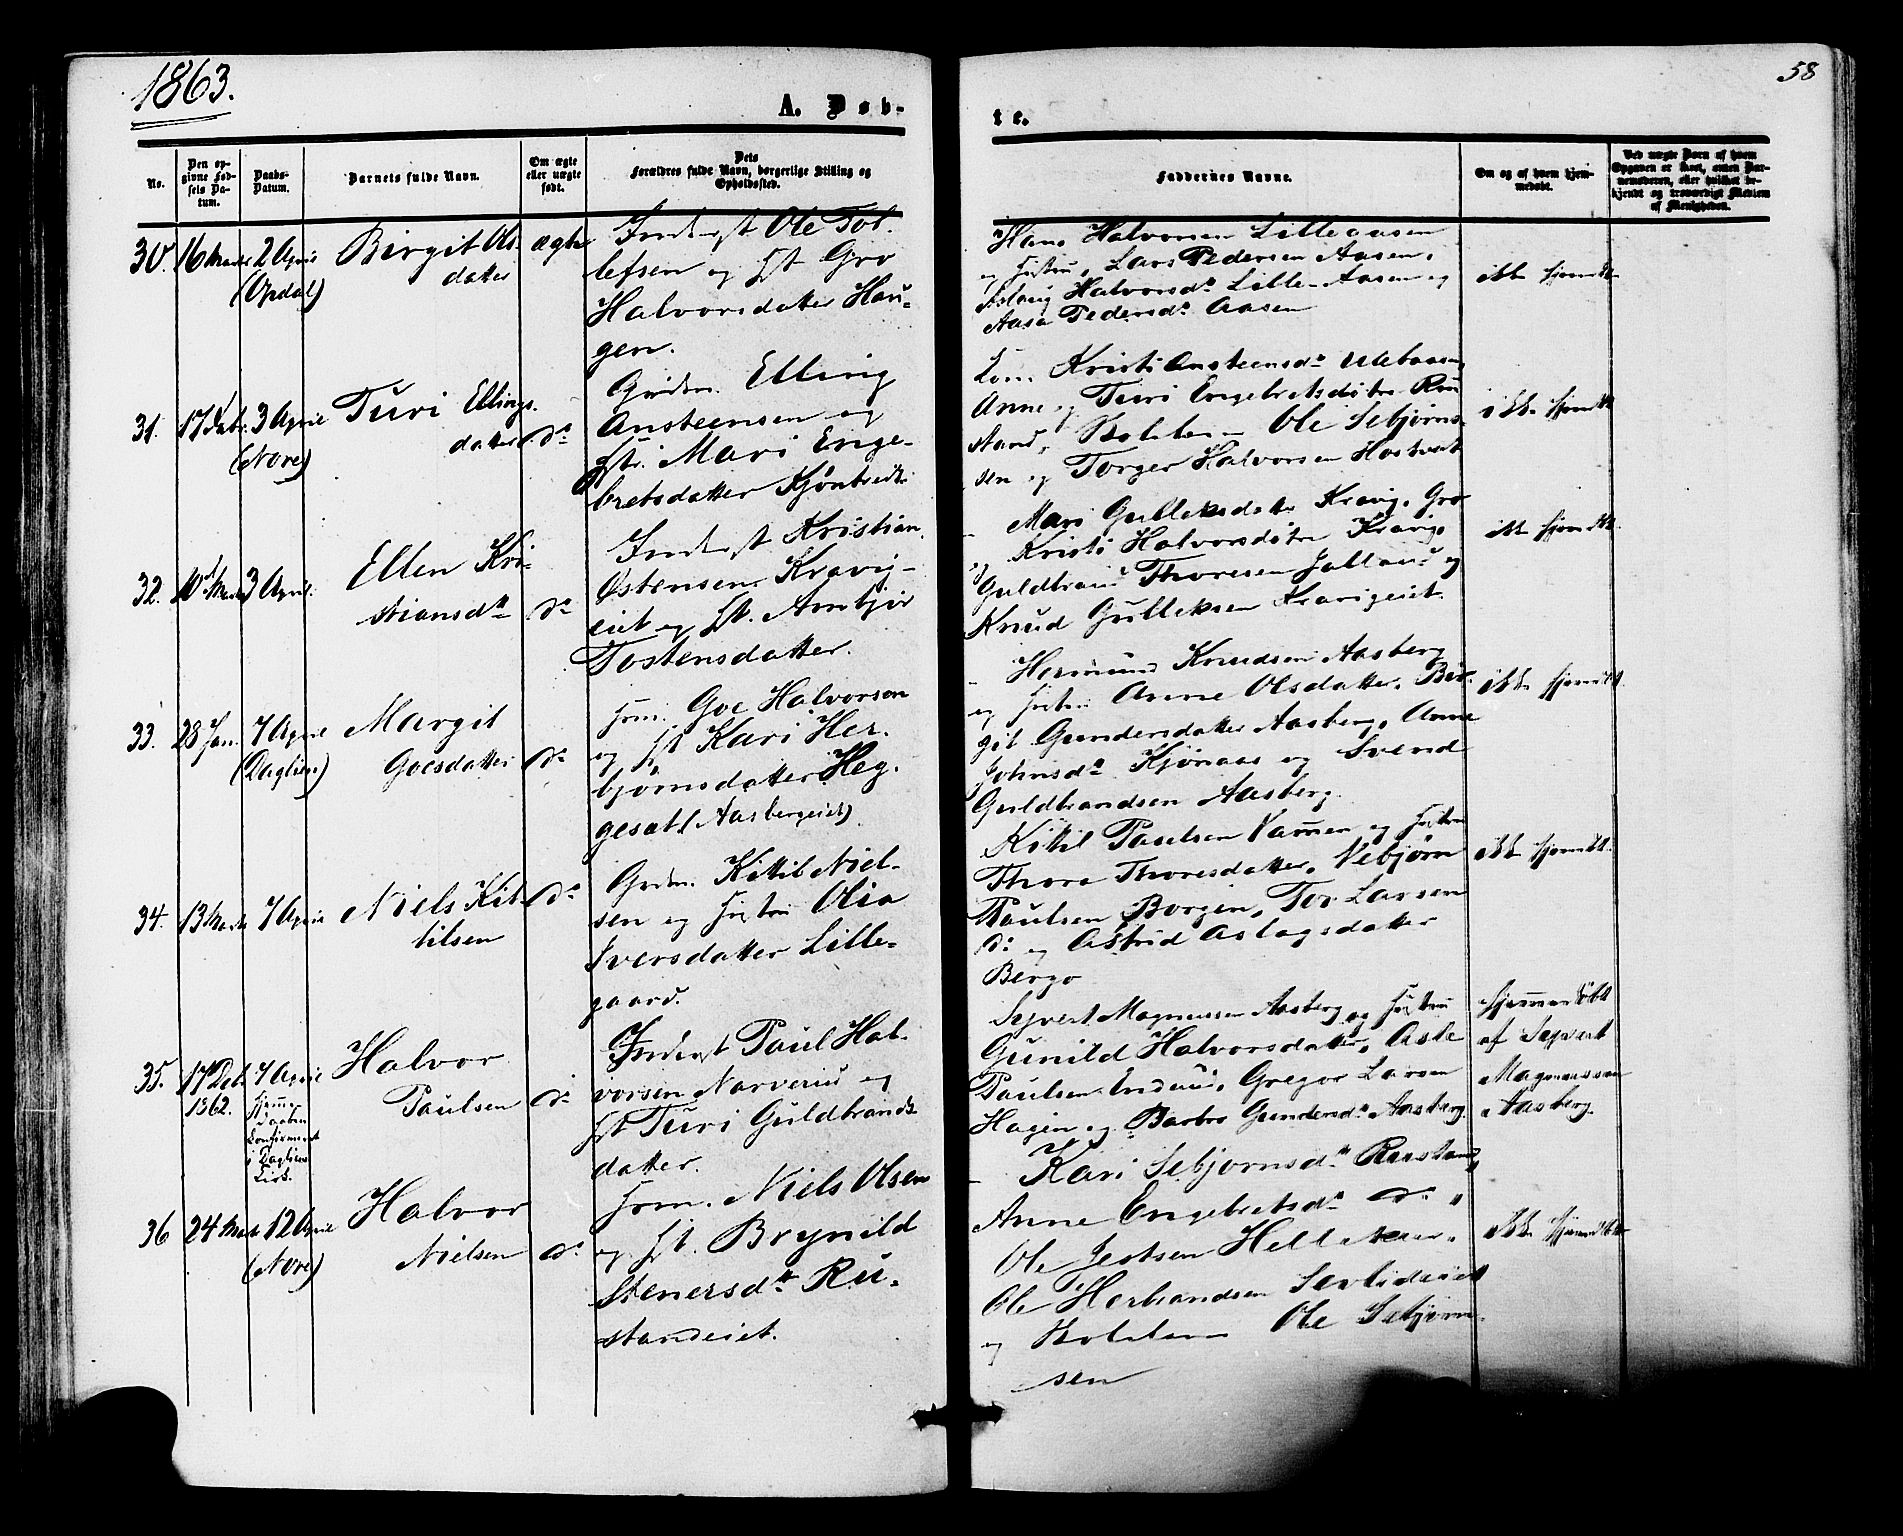 1863.
58
A. Døb-
te.
No.
Den op-
givne Fød-
sels Da-
tum.
Daabs-
Datum.
Barnets fulde Navn.
Om ægte
eller uægte
født.
Dets
Forældres fulde Navn, borgerlige Stilling og
Opholdssted.
Faddernes Navne.
Om og af hvem hjem-
medøbt.
Ved uægte Børn af hvem
Opgaven er skeet, enten Bar-
nemoderen, eller hvilket be-
kjendt og troværdigt Medlem
af Menigheden.
30. 16 Marts 2 April
(Opdal)
Birgit Ols-
datter
ægte
Inderst Ole Tol-
lefsen og Gro
Halvorsdatter Hau-
gen.
Hans Halvorsen Lilleaasen
og Hustru, Lars Pedersen Aasen,
Aslaug Halvorsdr Lille-Aasen og
Aasa Pedersdr Aasen
ikke hjemdøbt
31. 17 Febr. 3 April
(Nore)
Turi Ellings-
datter
do
Grdm. Elling
Ansteensen og
Hstr. Mari Enge-
bretsdatter Kjøntvedt
Kristi Ansteensdr Ulebaasen
Anne og Turi Engebretsdøtre Ru-
stand, Ole Sebjørn-
sen og Torger Halvorsen Hostvedt
ikke hjemdøbt
32. 10de Marts 3 April.
Ellen Kri-
stiansdtr
do
Inderst Kristian
Østensen Kravig-
eiet og Hst. Ambjør
Tostensdatter.
Mari Gulleksdatter Kravig, Gro
og Kristi Halvorsdøtre Kravig,
Guldbrand Thoresen og
Knud Gulleksen Kravigeiet.
ikke hjemdøbt
33. 28 Jan. 7 April
(Daglien)
Margit
Goesdatter
do
Hsm. Goe Halvorsen
og Hst Kari Her-
bjørnsdatter Heg-
gesæt (Aasbergeiet)
Hermund Knudsen Aasberg
og Hustru Anne Olsdatter, Bir-
git Gundersdatter Aasberg, Anne
Johnsdr Kjønaas og Svend
Guldbrandsen Aasberg.
ikke hjemdøbt
34. 13 Marts 7 April
Niels Kit-
tilsen
do
Grdm. Kittil Niel-
sen og Hustru Olia
Iversdatter Lille-
gaard.
Kittil Paulsen Vannen og Hustru
Thora Thoresdatter, Vebjørn
Paulsen Borgen, Tor Larsen
do og Astrid Aslagsdatter
Bergo
ikke hjemdøbt.
35. 17 Deb.
1862.
7 April
hjemme-
Daaben
Confirmeret
i Dagliens
Kirk.
Halvor
Paulsen
do
Inderst Paul Hal-
vorsen Narverud og
Hst Turi Guldbrands-
datter.
Syvert Magnussen Aasberg og Hustru
Gunild Halvorsdatter, Asle
Paulsen, Gregor Larsen
Hagen og Barbro Gundersdr Aasberg.
hjemmedøbt
af Syvert
Magnussen
Aasberg.
36 24 Marts 12 April
(Nore)
Halvor
Nielsen
do
Hsm. Niels Olsen
og Hst. Brynild
Stenersdtr Ru-
standeiet.
Kari Sebjørnsdr Rustand,
Anne Engebretsdr do,
Ole Jertsen
Ole Herbrandsen
og Ole Sebjørn-
sen
ikke hjemdøbt